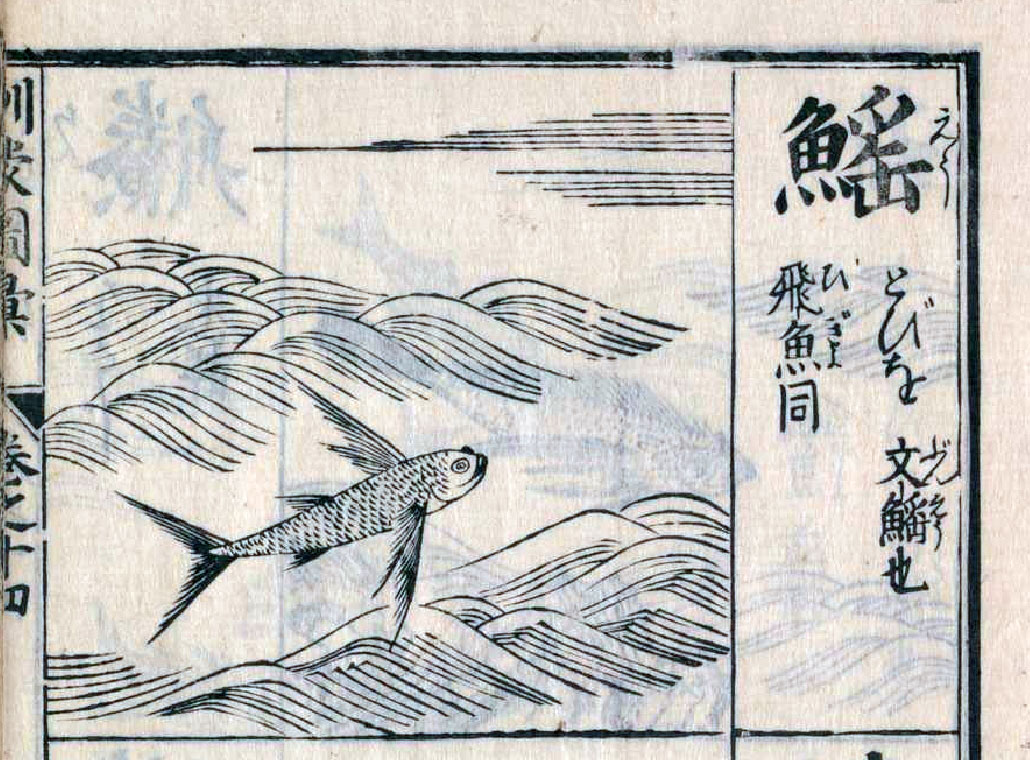 鰩
えう
とびを 文鰩也
ぶんえう
飛魚同
ひぎよ
訓蒙圖彙
卷之十四